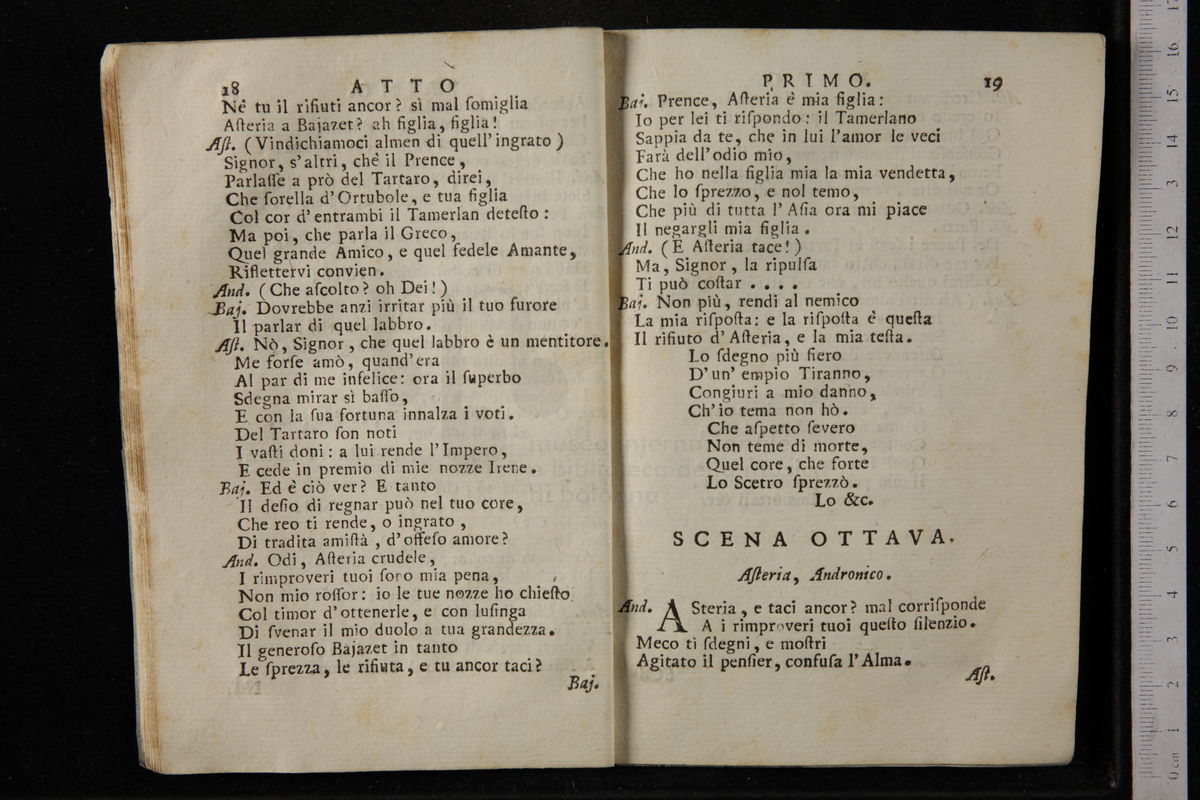 18 ATTO
Nè tu il rifiuti ancor? sì mal ſomiglia
Aſteria a Bajazet? ah figlia, figlia!
Aſt. (Vindichiamoci almen di quell'ingrato)
Signor, s'altri, chè il Prence,
Parlaſſe a prò del Tartaro, direi,
Che ſorella d'Ortubole, e tua figlia
Col cor d'entrambi il Tamerlan deteſto:
Ma poi, che parla il Greco,
Quel grande Amico, e quel fedele Amante,
Riflettervi convien.
And. (Che aſcolto? oh Dei!)
Baj. Dovrebbe anzi irritar più il tuo furore
Il parlar di quel labbro.
Aſt. Nò, Signor, che quel labbro è un mentitore.
Me forſe amò, quand'era
Al par di me infelice: ora il ſuperbo
Sdegna mirar sì baſſo,
E con la ſua fortuna innalza i voti.
Del Tartaro ſon noti
I vaſti doni: a lui rende l'Impero,
E cede in premio di mie nozze Irene.
Baj. Ed è ciò ver? E tanto
Il deſio di regnar può nel tuo core,
Che reo ti rende, o ingrato,
Di tradita amiſtà, d'offeſo amore?
And. Odi, Aſteria crudele,
I rimproveri tuoi ſoro mia pena,
Non mio roſſor: io le tue nozze ho chieſto
Col timor d'ottenerle, e con luſinga
Di ſvenar il mio duolo a tua grandezza.
Il generoſo Bajazet in tanto
Le ſprezza, le rifiuta, e tu ancor taci?
Baj.
PRIMO. 19
Baj. Prence, Aſteria è mia figlia:
Io per lei ti riſpondo: il Tamerlano
Sappia da te, che in lui l'amor le veci
Farà dell'odio mio,
Che ho nella figlia mia la mia vendetta,
Che lo ſprezzo, e nol temo,
Che più di tutta l'Aſia ora mi piace
Il negargli mia figlia.
And. (E Aſteria tace!)
Ma, Signor, la ripulſa
Ti può coſtar . . . .
Baj. Non più, rendi al nemico
La mia riſpoſta: e la riſpoſta è queſta
Il rifiuto d'Aſteria, e la mia teſta.
Lo ſdegno più fiero
D'un' empio Tiranno,
Congiuri a mio danno,
Ch'io tema non hò.
Che aſpetto ſevero
Non teme di morte,
Quel core, che forte
Lo Scetro ſprezzò.
Lo &c.
SCENA OTTAVA.
Aſteria, Andronico.
And. ASteria, e taci ancor? mal corriſponde
A i rimproveri tuoi queſto ſilenzio.
Meco ti ſdegni, e moſtri
Agitato il penſier, confuſa l'Alma.
Aſt.